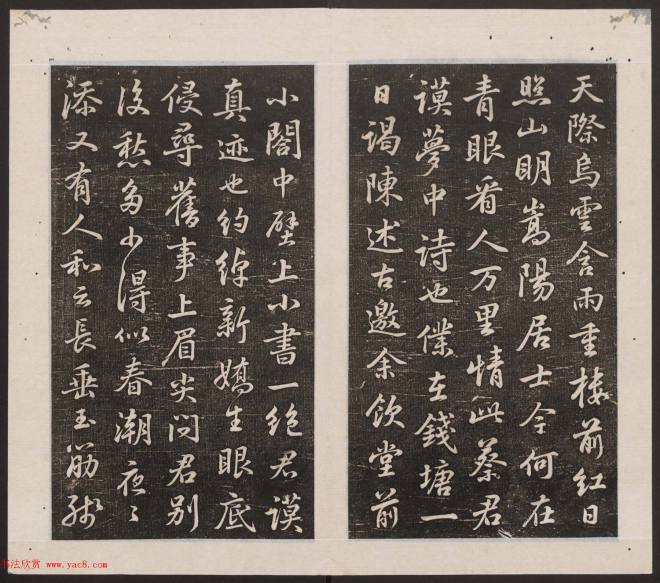 天際烏雲含雨重樓前紅日
照山明嵩陽居士今何在
青眼看人万里情此蔡君
謨夢中詩也僕在錢塘一
日謁陳述古邀余飲堂前
小閣中壁上小書一絶君謨
真迹也約綽新嬌生眼底
侵尋舊事上眉尖問君別
後愁多少得似春潮夜〻
添又有人和云長垂玉筯殘
书法欣赏 www.yac8.com